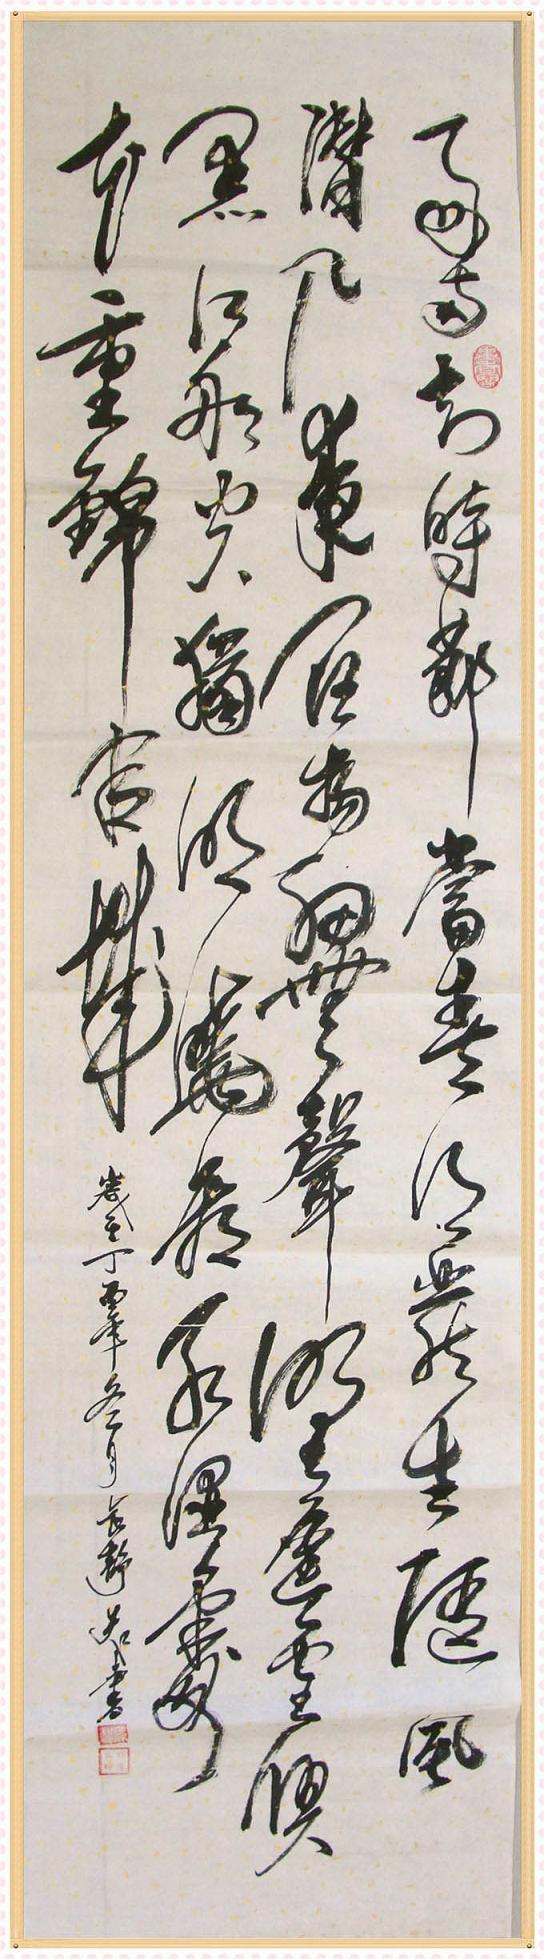 好雨知時節當春乃發生隨風
潛入夜潤物細無聲野徑雲俱
黑江船火獨明曉看紅濕處
花重錦官城
丁酉年冬月 書